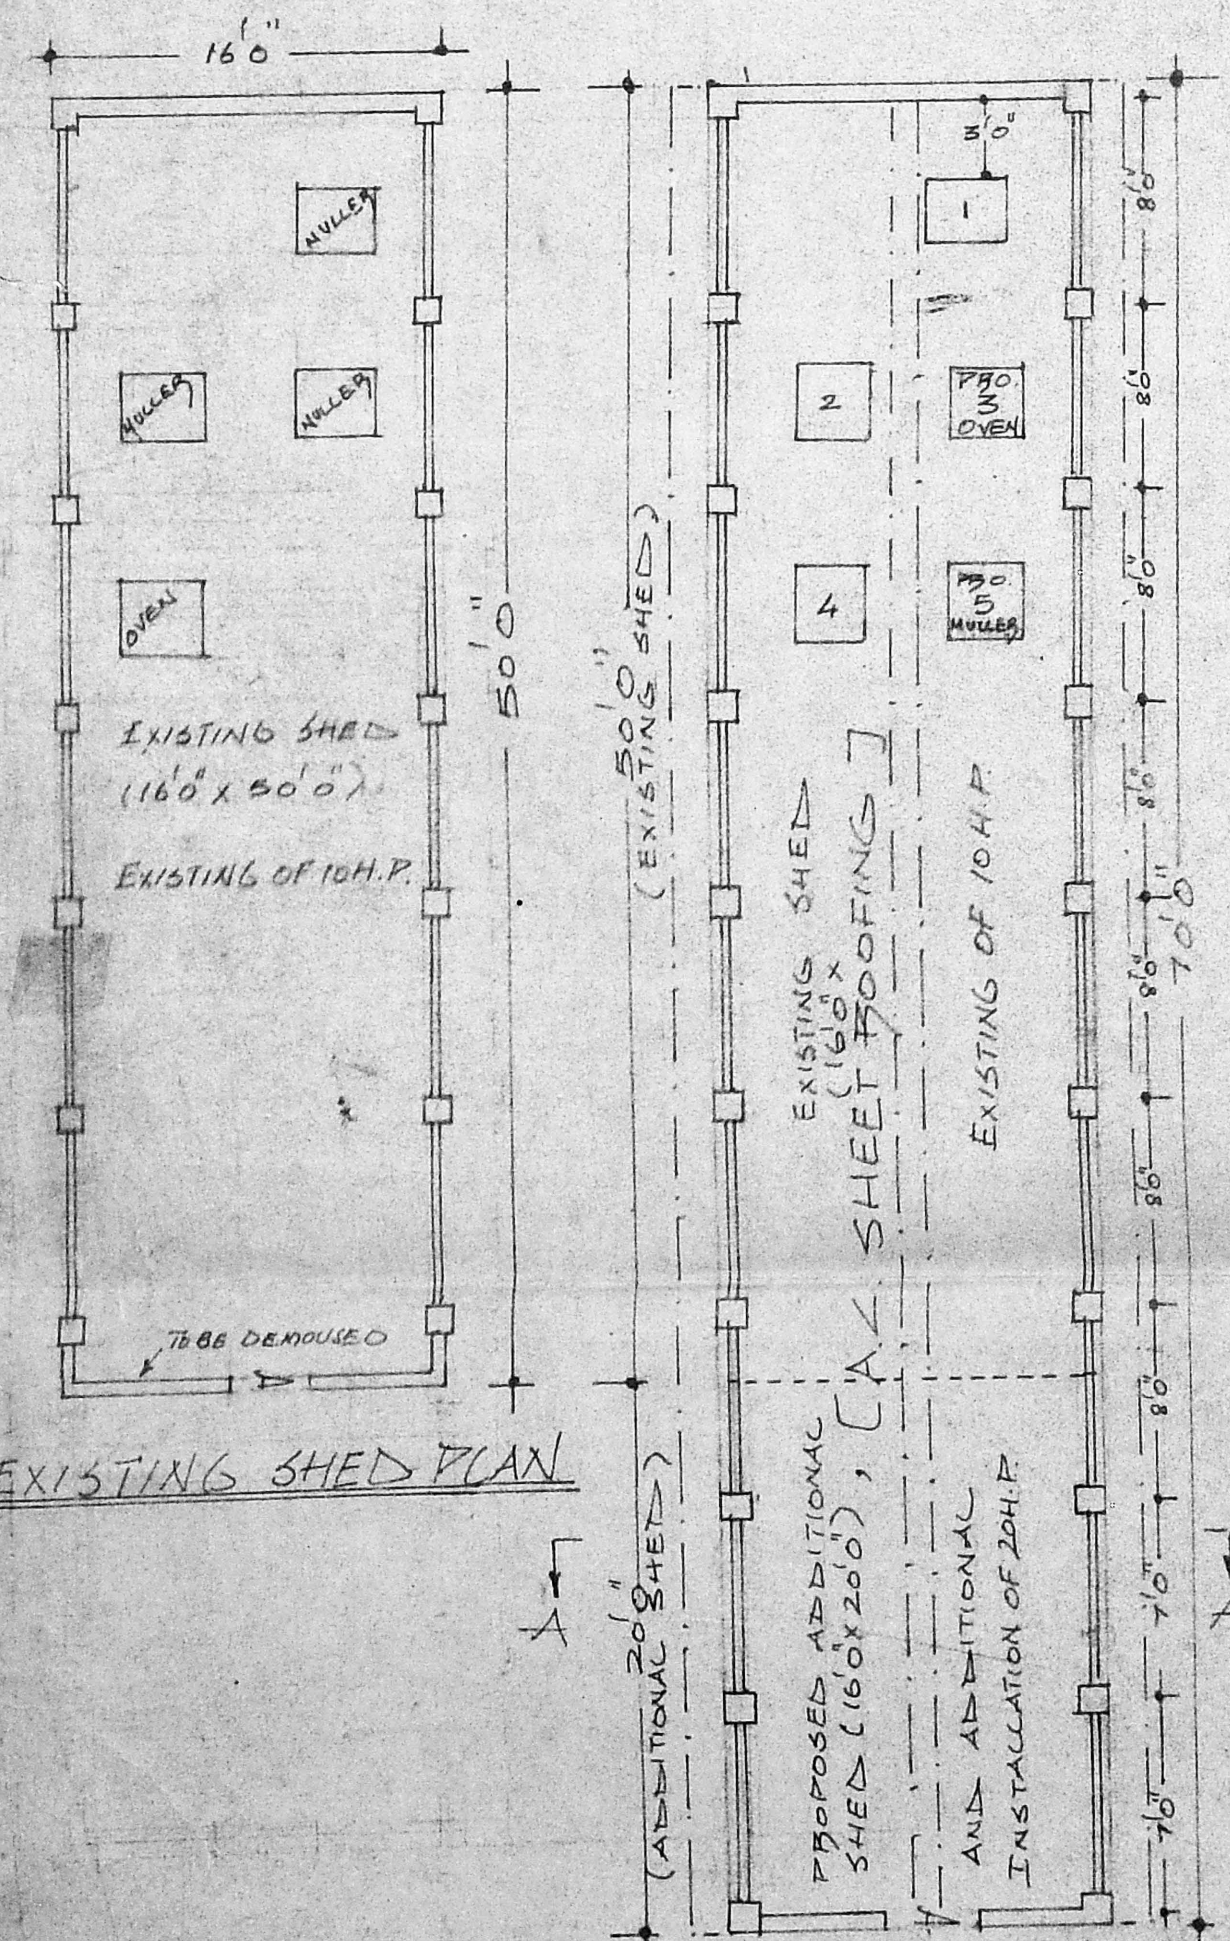 16'0"
MULLER
MULLER
MULLER
OVEN
EXISTING SHED
(16'0" X 50'0")
EXISTING OF 10H.P.
50'0"
TO BE DEMOUSED
EXISTING SHED PLAN
50'0"
(EXISTING SHED)
20'0"
(ADDITIONAL SHED)
A
3'0"
1
2
PRO.
3
OVEN
4
PRO.
5
MULLER
EXISTING SHED
(16'0" X
[A.C. SHEET ROOFING]
EXISTING OF 10H.P.
PROPOSED ADDITIONAL
SHED (16'0" X 20'0"),
AND ADDITIONAL
INSTALLATION OF 20H.P.
8'0"
8'0"
8'0"
8'0"
8'0"
8'0"
8'0"
7'0"
7'0"
70'0"
A